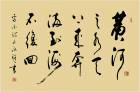 黄河
之水天
上来奔
流到海
不復回